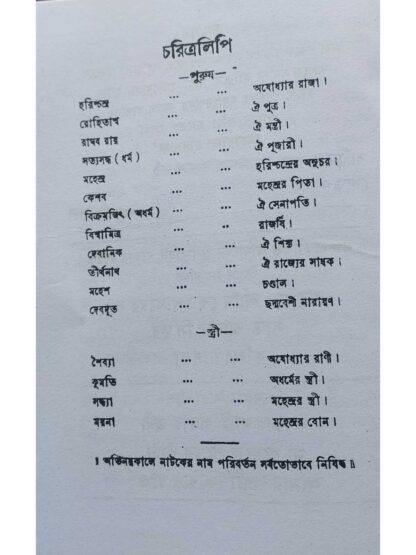 চরিত্রলিপি
—পুরুষ—
হরিশ্চন্দ্র ... ... অযোধ্যার রাজা।
রোহিতাশ্ব ... ... ঐ পুত্র।
রাঘব রায় ... ... ঐ মন্ত্রী।
সত্যানন্দ ( ধর্ম ) ... ... ঐ পূজারী।
মহেন্দ্র ... ... হরিশ্চন্দ্রের অনুচর।
কেশব ... ... মহেন্দ্রর পিতা।
বিক্রমজিৎ ( অধর্ম ) ... ... ঐ সেনাপতি।
বিশ্বামিত্র ... .. রাজর্ষি।
দেবানিক ... ... ঐ শিষ্য।
তীর্থনাথ ... ... ঐ রাজ্যের সাধক।
মহেশ ... ... চণ্ডাল।
দেবদূত ... ... ছদ্মবেশী নারায়ণ।
—স্ত্রী—
শৈব্যা ... ... অযোধ্যার রাণী।
কুমতি ... ... অধর্মের স্ত্রী।
সন্ধ্যা ... ... মহেন্দ্রর স্ত্রী।
ময়না ... ... মহেন্দ্রর বোন।
। অভিনয়কালে নাটকের নাম পরিবর্তন সর্বতোভাবে নিষিদ্ধ॥